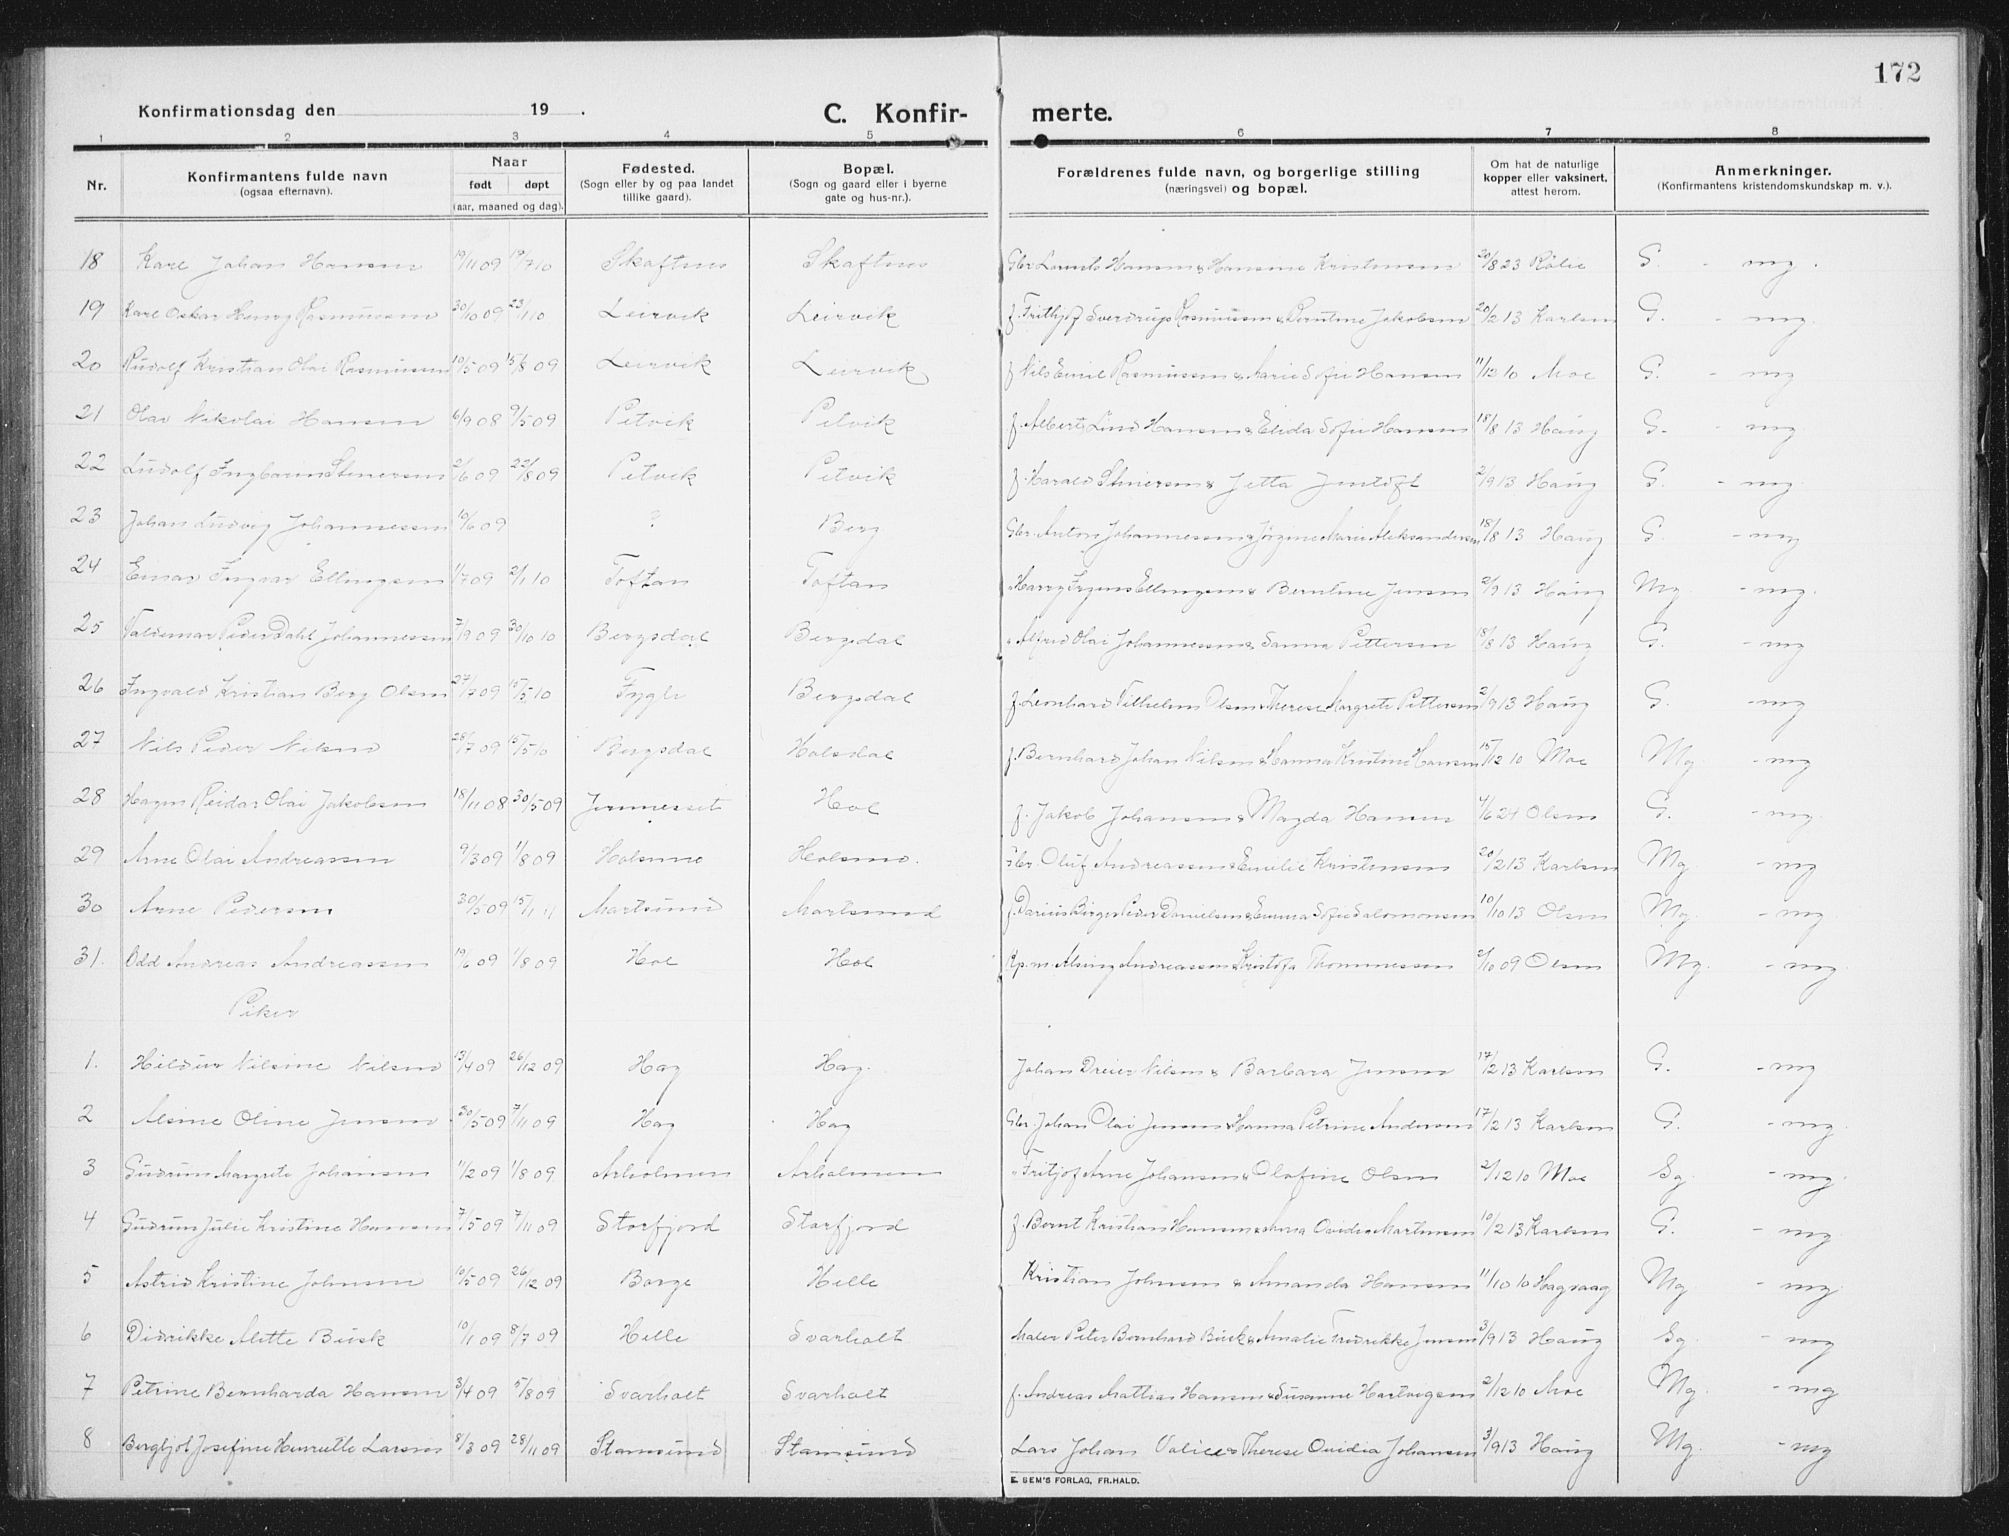 172
Konfirmationsdag den 19 . C. Konfir- merte.
1 2 3 4 5 6 7 8
Nr. Konfirmantens fulde navn (ogsaa efternavn). Naar født døpt (aar, maaned og dag). Fødested. (Sogn eller by og paa landet tillike gaard). Bopæl. (Sogn og gaard eller i byerne gate og hus-nr.). Forældrenes fulde navn, og borgerlige stilling (næringsvei) og bopæl. Om hat de naturlige kopper eller vaksinert, attest herom. Anmerkninger. (Konfirmantens kristendomskundskap m. v.).
18 Kare Johan Hansen 19/11 09 17/7 10 Skaftnes Skaftnes Hansen & Hansine Kristensen 20/8 23 G - mg.
19 Kare Oskar Henry Rasmussen 30/10 09 23/1 10 Leirvik Leirvik f. Frithjof Sverdrup Rasmussen & Berntine Jakobsen 20/2 13 Karlsen G. - mg.
20 Rudolf Kristian Olai Rasmussen 10/5 09 15/8 09 Leirvik Leirvik f Nils Emil Rasmussen & Marie Sofie Hansen 11/12 10 Moe G. - mg
21 Olav Nikolai Hansen 6/9 08 9/5 09 Petvik Petvik f. Albert Lind Hansen & Elida Sofie Hansen 18/8 13 Haug G. - mg
22 Ludolf Steinersen 2/6 09 22/8 09 Petvik Petvik f. Harald Steinersen & Jetta Jentoft 2/9 13 Haug G. - mg
23 Johan Ludvig Johannessen 10/6 09 ? Berg Gbr. Anton Johannessen & Jørgine Marie Aleksandersen 18/8 13 Haug G. - mg
24 Einar Ingvar Ellingsen 1/7 09 2/1 10 Toftan Toftan Harry Ellingsen & Berntine Jensen 2/9 13 Haug Mg - mg.
25 Valdemar Peder Dahl Johannessen 7/9 09 30/10 10 Bergsdal Bergsdal " Alfred Olai Johannessen & Sanna Pettersen 18/8 13 Haug G. - mg
26 Ingvald Kristian Berg Olsen 27/7 09 15/5 10 Fygle Bergsdal f. Leonhard Vilhelm Olsen & Therese Margrete Pettersen 2/9 13 Haug G. - mg
27 Nils Peder Nilsen 28/7 09 15/5 10 Bergsdal Holsdal f. Bernhard Johan Nilsen & Hanna Kristine Hansen 15/12 10 Moe Mg - mg
28 Hagen Reidar Olai Jakobsen 18/11 08 30/5 09 Jennesset Hol f. Jakob Johansen & Magda Hansen 4/6 24 Olsen G. - mg.
29 Arne Olai Andreassen 9/3 09 1/8 09 Holsmo Holsmo. Gbr. Oluf Andreassen & Emilie Kristensen 20/2 13 Karlsen Mg - mg
30 Arne Pedersen 30/5 09 15/1 11 Mortsund Mortsund f. Darius Birger Peder Danielsen & Emma Sofie Salomonsen 10/10 13 Olsen Mg - mg
31. Odd Andreas Andreassen 19/6 09 1/8 09 Hol Hol Alsing Andreassen & Kristofa Thommessen 2/10 09 Olsen Mg. - mg
Piker
1. Hildur Nilsine Nilsen 13/4 09 26/12 09 Hag Hag. Johan Dreier Nilsen & Barbara Jensen 17/2 13 Karlsen G. - mg
2 Alsine Oline Jensen 30/5 09 7/11 09 Hag Hag Gbr. Johan Olai Jensen & Hanna Petrine Andersen 17/2 13 Karlsen G. - mg.
3 Gudrun Margrete Johansen 11/2 09 1/8 09 Arholmen Arholmen " Fritjof Arne Johansen & Olofine Olsen 2/12 10 Moe Sg - mg.
4 Gudrun Julie Kristine Hansen 7/5 09 7/11 09 Storfjord Storfjord f. Bernt Kristian Hansen & Anna Ovidia Martinsen 10/2 13 Karlsen G. - mg
5 Astrid Kristine Johnsen 10/5 09 26/12 09 Borge Helle Kristian Johnsen & Amanda Hansen 11/10 10 Hagsaag Mg - mg
6 Didrikke Alette Busk 10/1 09 8/7 09 Helle Svarholt Maler Peter Bernhard Busk & Amalie Fredrikke Jensen 3/9 13 Haug Sg - mg
7 Petrine Bernharda Hansen 3/4 09 5/8 09 Svarholt Svarholt f. Andreas Mathias Hansen & Susanne Hartvigsen 2/12 10 Moe Mg. - mg
8 Bergljot Josefine Henriette Larsen 8/3 09 28/11 09 Stamsund Stamsund Lars Johan & Therese Ovidia Johansen 3/9 13 Haug Mg. - mg
E. SEM'S FORLAG, FR.HALD.